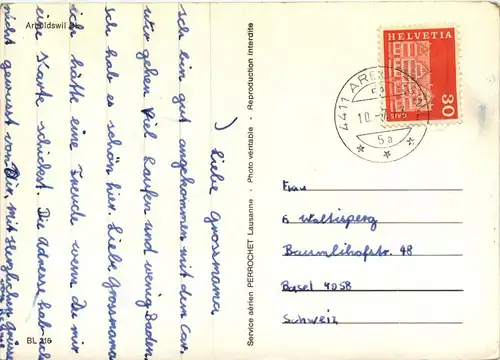 Arboldswil BL
Liebe Grossmama
Ich bin gut angekommen mit dem Car.
wier gehen viel laufen und wenig Baden.
Ich hab es schön hier. Liebe Grossmama
ich hätte eine Freude wenn Du mir
eine Karte schickst. Die Adresse hab ich
nicht gewusst von Dir, mit Herzlichen Grüsse
BL 216
Service aérien PERROCHET Lausanne - Photo véritable - Reproduction interdite
HELVETIA
30
GAIS
4411
10.
5a
Frau
G Waltisperg
Bäumlihofstr. 48
Basel 4058
Schweiz